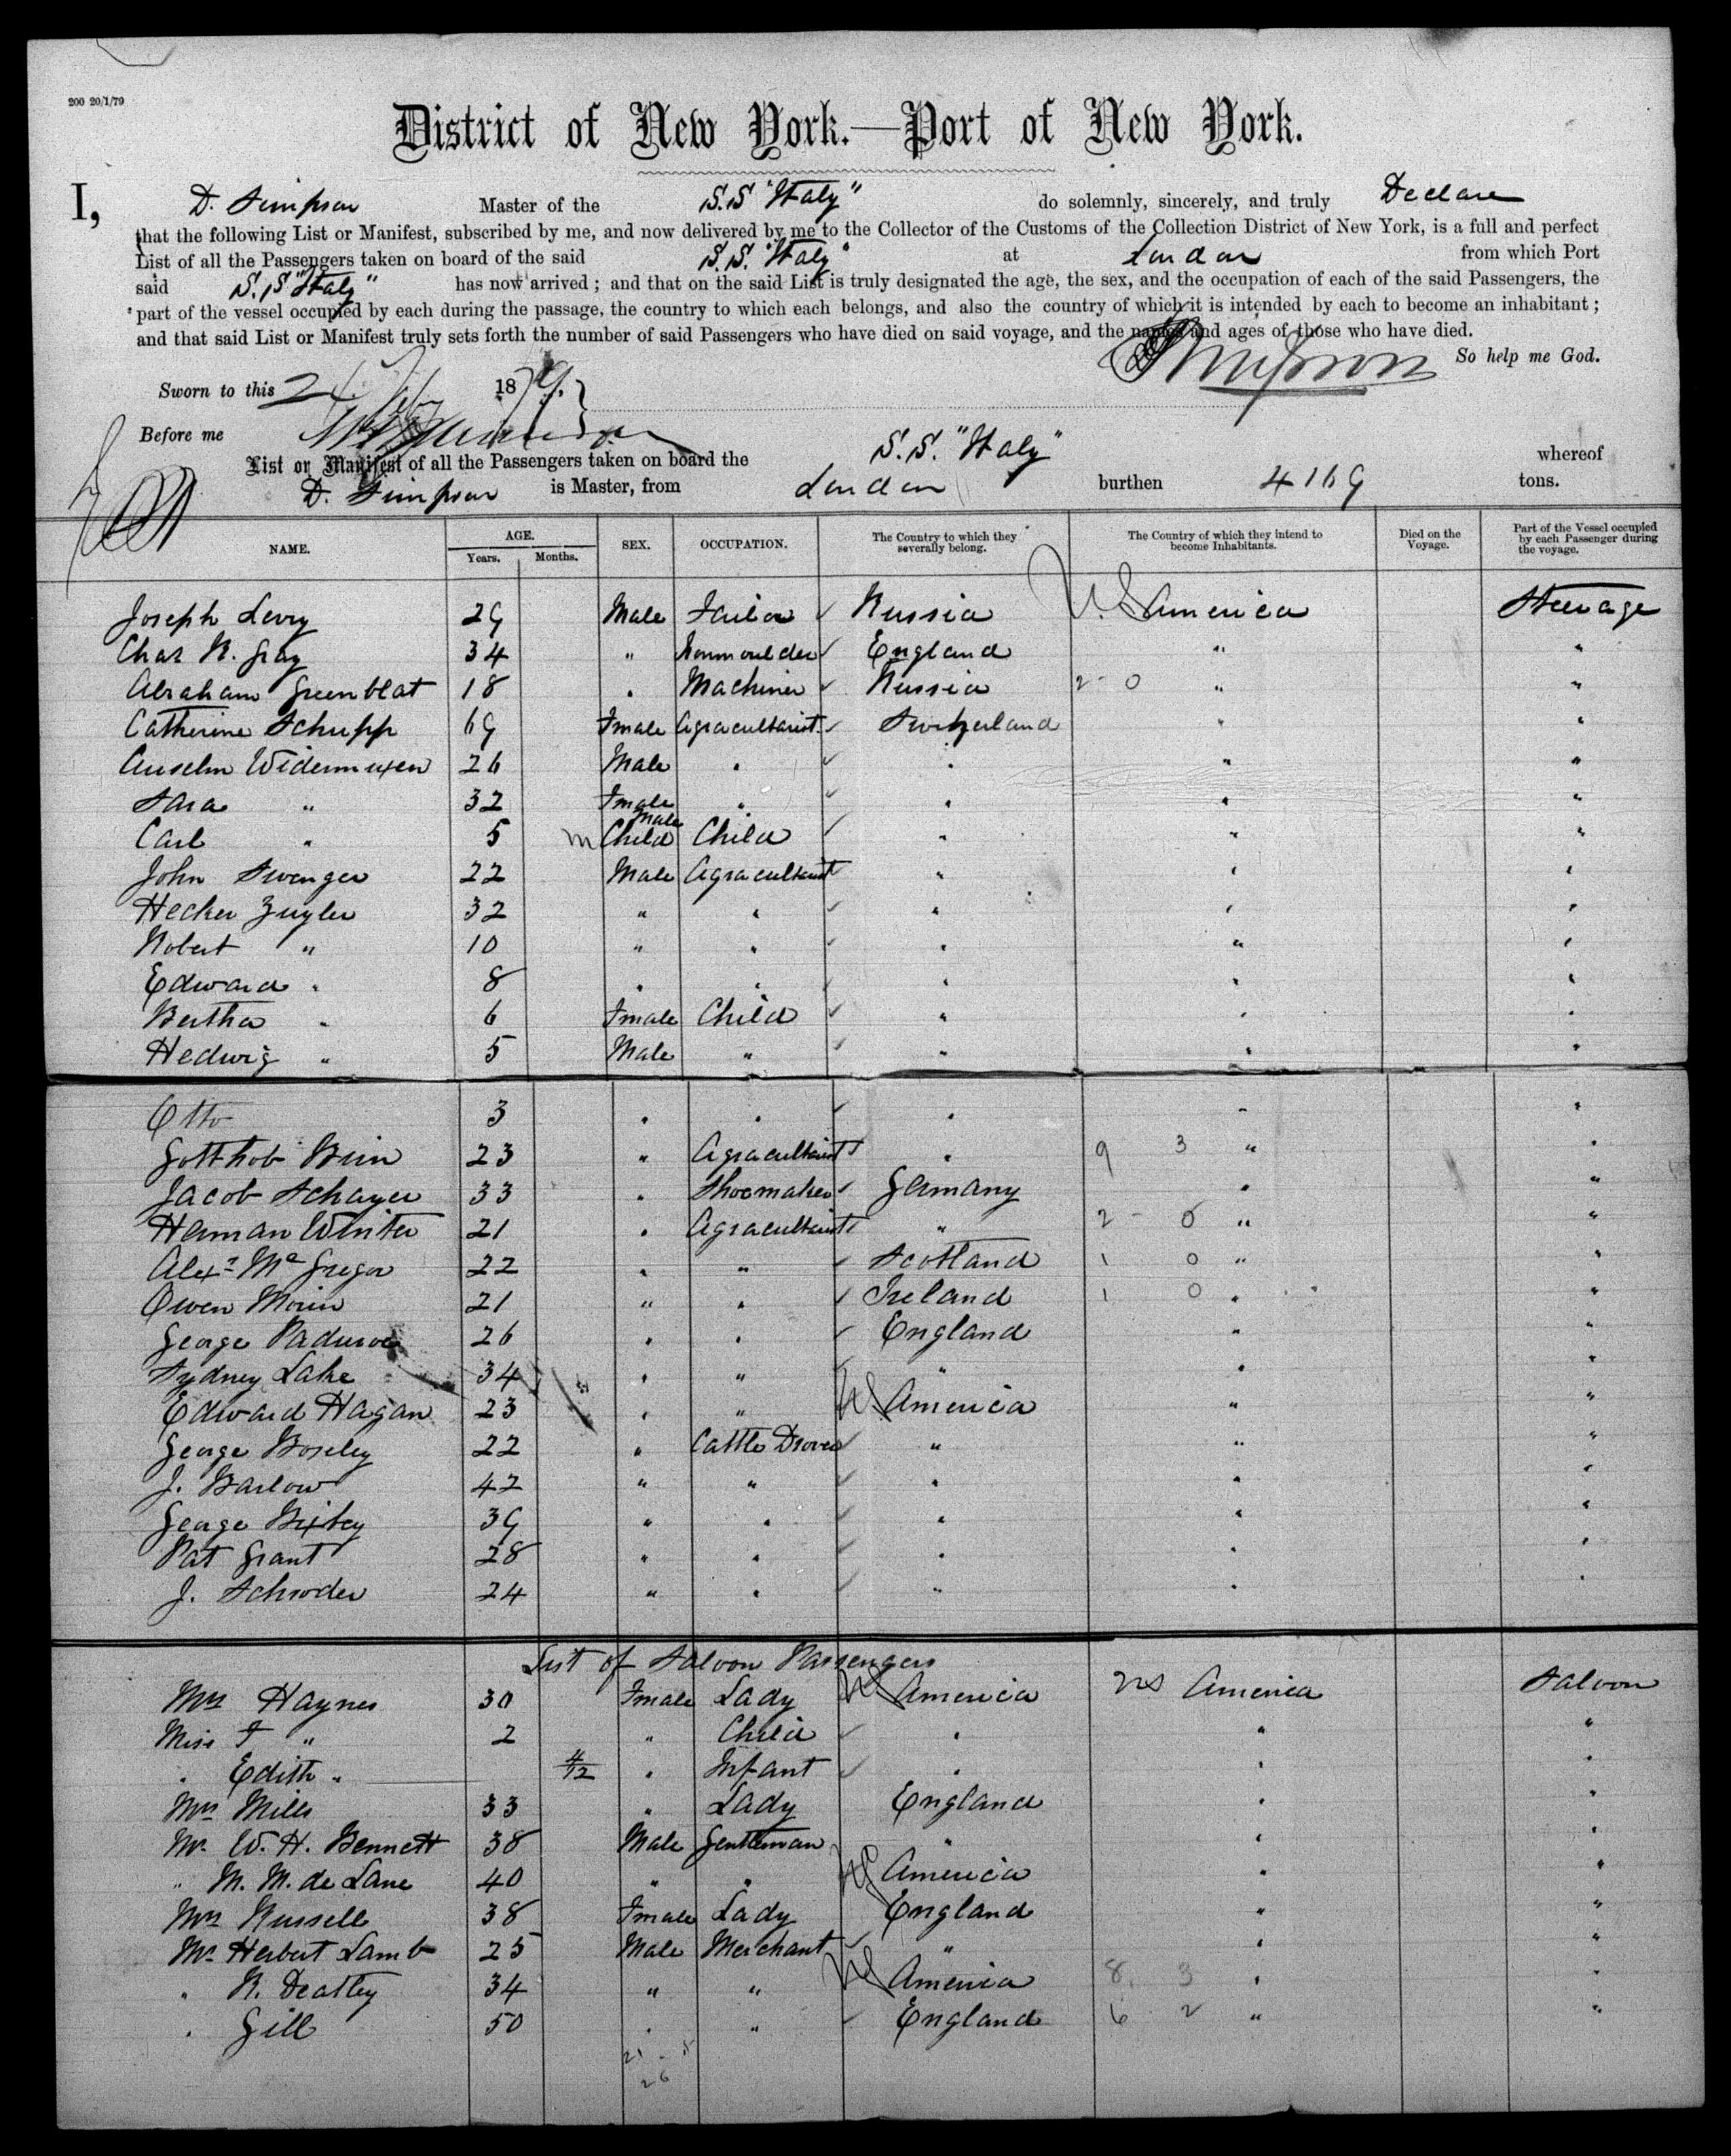 200 20/1/79
District of New York.—Port of New York.
I, D. Simpson Master of the S.S "Italy" do solemnly, sincerely, and truly Declare
that the following List or Manifest, subscribed by me, and now delivered by me to the Collector of the Customs of the Collection District of New York, is a full and perfect
List of all the Passengers taken on board of the said S.S. "Italy" at London from which Port
said S.S "Italy" has now arrived ; and that on the said List is truly designated the age, the sex, and the occupation of each of the said Passengers, the
part of the vessel occupied by each during the passage, the country to which each belongs, and also the country of which it is intended by each to become an inhabitant ;
and that said List or Manifest truly sets forth the number of said Passengers who have died on said voyage, and the names and ages of those who have died.
Simpson So help me God.
Sworn to this 24 Feby 1879.
Before me
List or Manifest of all the Passengers taken on board the S.S. "Italy" whereof
D. Simpson is Master, from London burthen 4169 tons.
NAME. AGE. Years. Months. SEX. OCCUPATION. The Country to which they severally belong. The Country of which they intend to become Inhabitants. Died on the Voyage. Part of the Vessel occupied by each Passenger during the voyage.
Joseph Levy 29 Male Tailor Russia U.S America Steerage
Chas R. Gray 34 " Ironmoulder England " "
Abraham Greenblat 18 " Machiner Russia 2 - 0 " "
Catherine Schupp 69 Fmale Agracultarist Switzerland " "
Anselm Widermuxen 26 Male " " " "
Sara " 32 Fmale " " " "
Carl " 5 m Male Child Child " " "
John Swenger 22 Male Agracultarist " " "
Hecker Zugler 32 " " " " "
Robert " 10 " " " " "
Edward " 8 " " " " "
Bertha " 6 Fmale Child " " "
Hedwig " 5 Male " " " "
Otto 3 " " " " "
Gotthob Brin 23 " Agracultarist " 9 3 " "
Jacob Schayer 33 " Shoemaker Germany " "
Herman Winter 21 " Agracultarist " 2 - 0 " "
Alexr McGregor 22 " " Scotland 1 0 " "
Owen Morin 21 " " Ireland 1 0 " "
George Padwroe 26 " " England " "
Sydney Lake 34 " " " " "
Edward Hagan 23 " " US America " "
George Boseley 22 " Cattle Drover " " "
J. Barlow 42 " " " " "
George Bixbey 39 " " " " "
Pat Grant 28 " " " " "
J. Schroder 24 " " " " "
List of Saloon Passengers
Mrs Haynes 30 Fmale Lady US America US America Saloon
Miss F " 2 " Child " " "
" Edith " 4/12 " Infant " " "
Mrs Mills 33 " Lady England " "
Mr W. H. Bennett 38 Male Gentleman " " "
" M. M. de Lane 40 " " US America " "
Mrs Russell 38 Fmale Lady England " "
Mr Herbert Lamb 25 Male Merchant " " "
" R. Deatley 34 " " US America 8. 3 " "
" Gill 50 " " England 6 2 " "
26